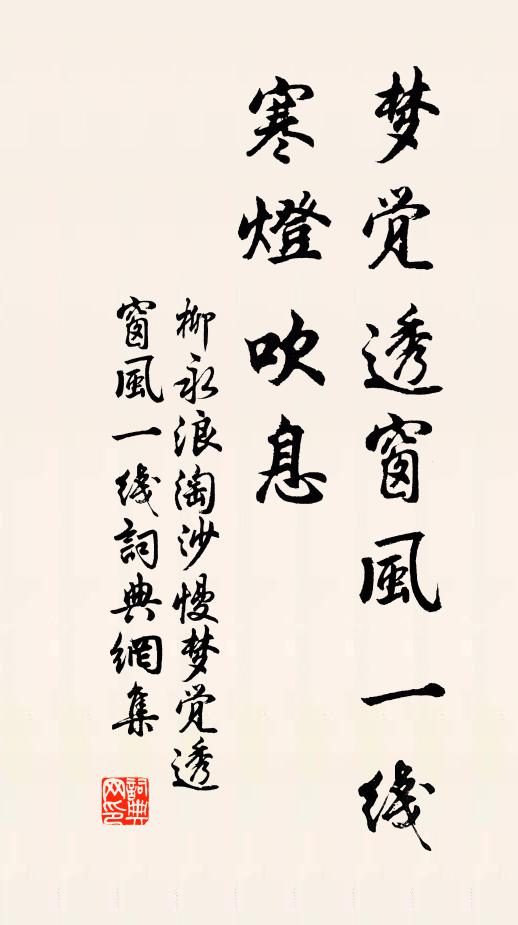 梦觉透窗風一线
寒燈吹息
柳永浪淘沙慢梦觉透
窗風一线詞典網集
詞典
网印